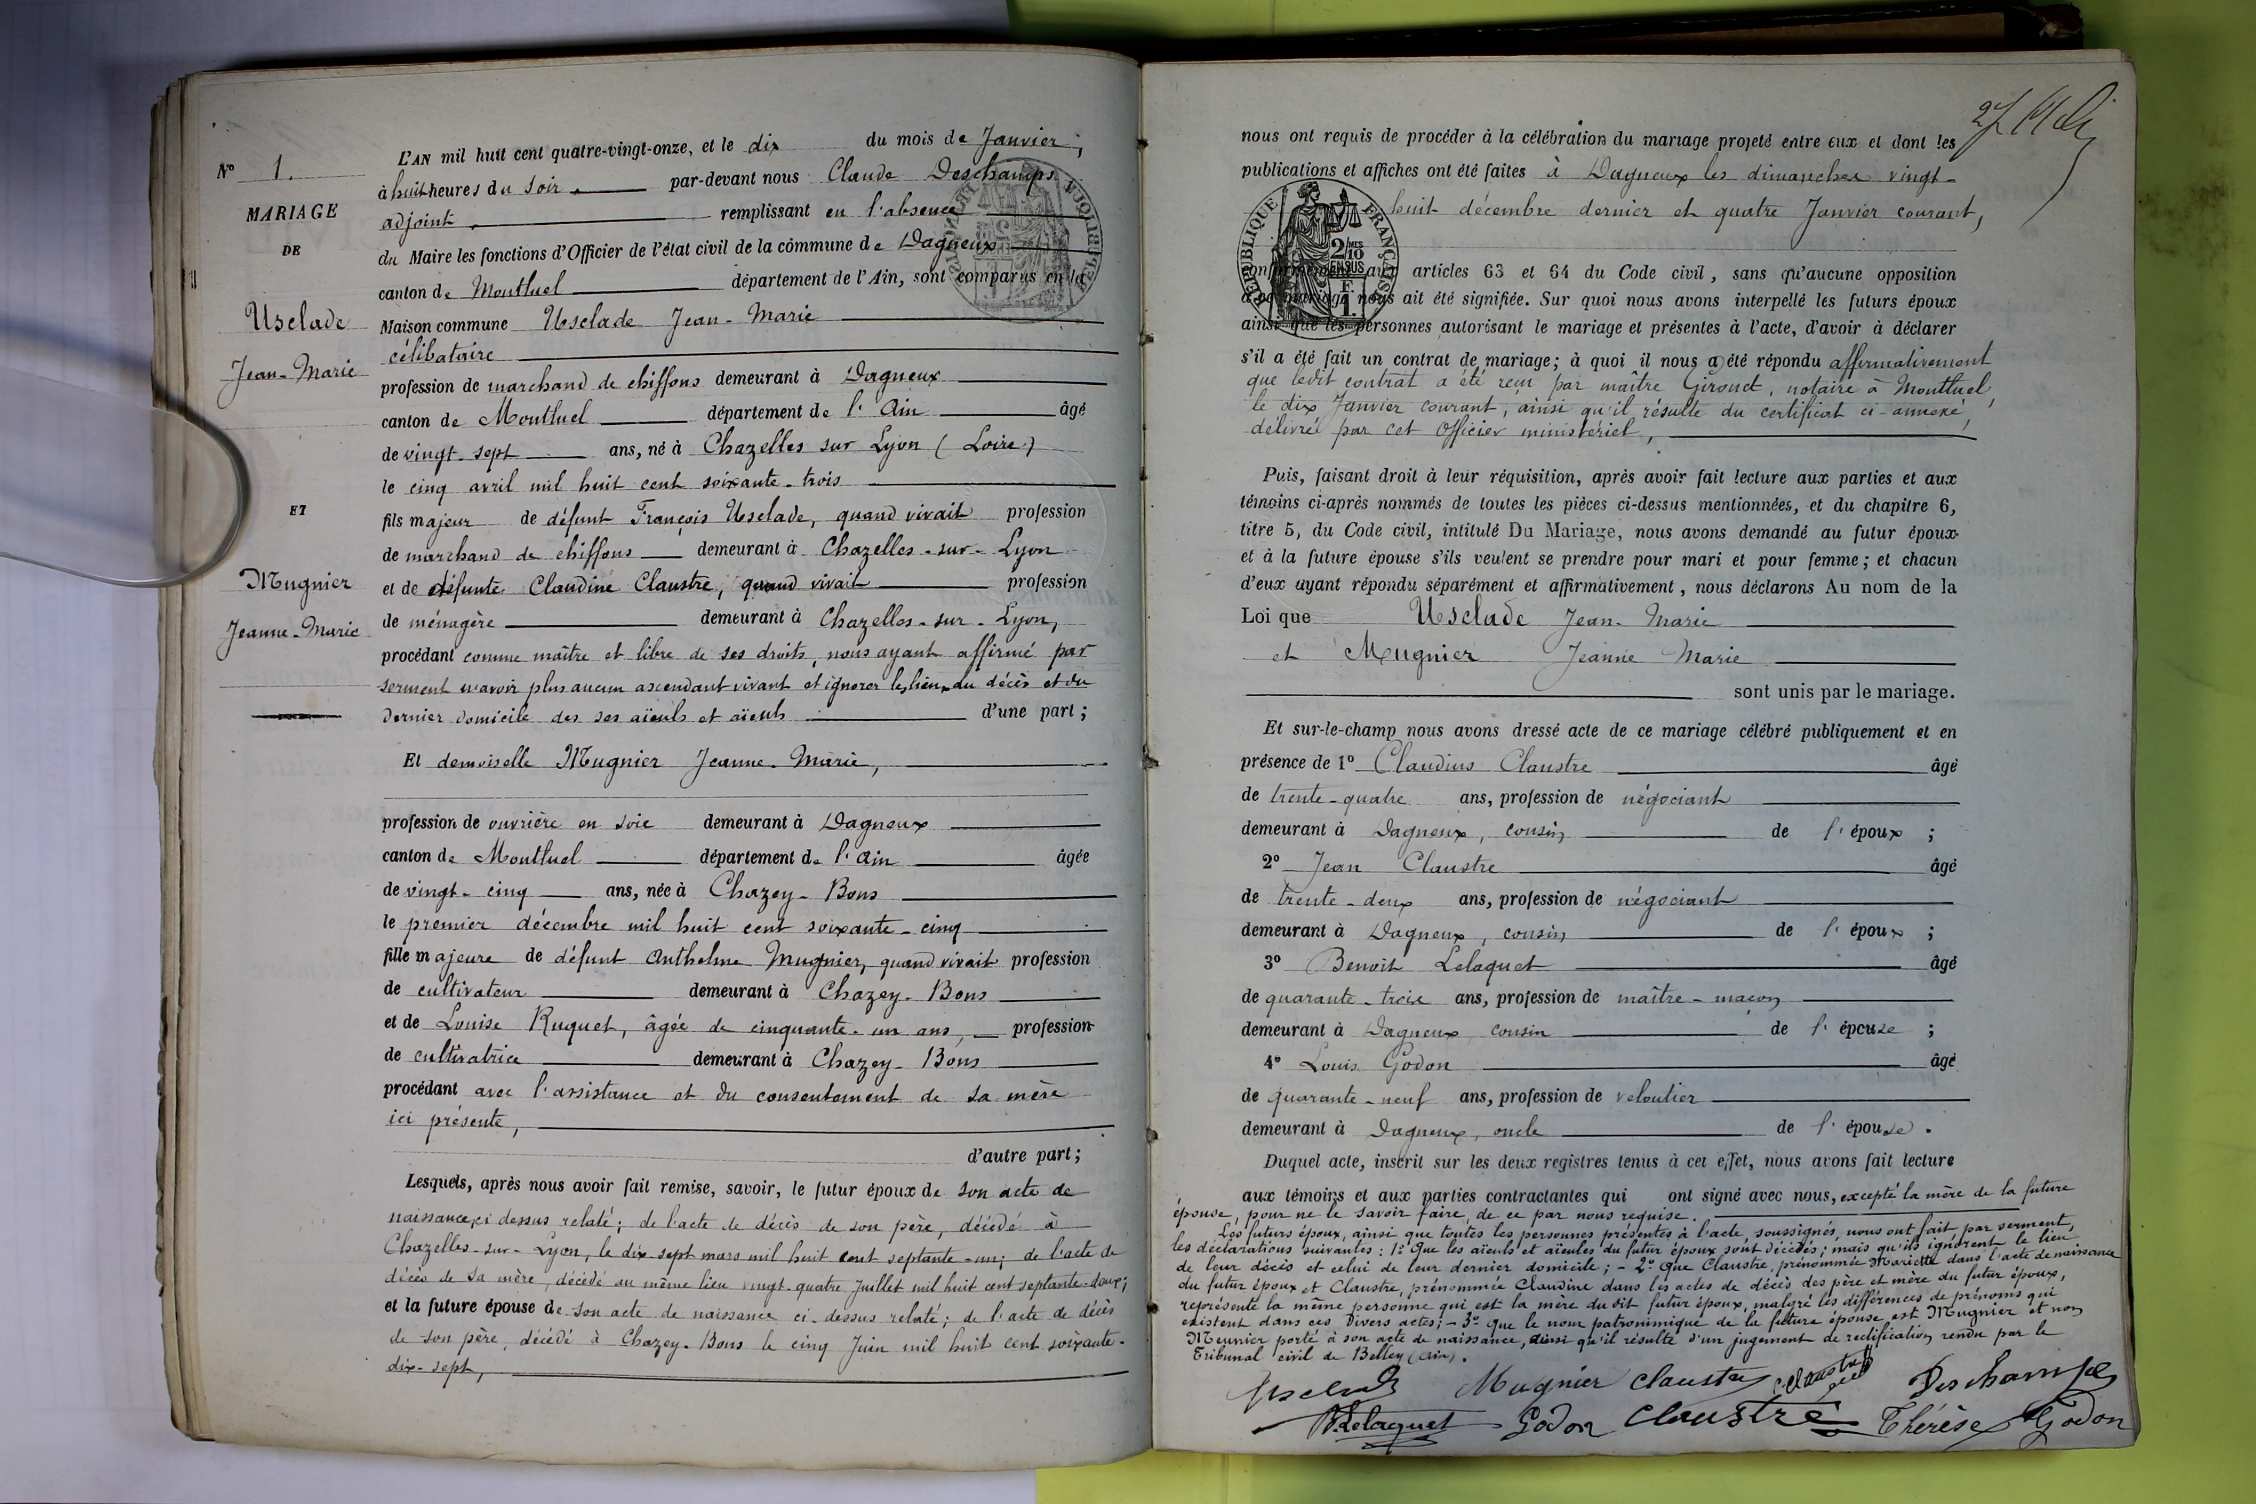 N° 1.
MARIAGE
DE
Usclade
Jean-Marie
ET
Mugnier
Jeanne-Marie
L'AN mil huit cent quatre-vingt-onze, et le dix du mois de Janvier,
à huit heures du soir, par-devant nous Claude Deschamps
adjoint, remplissant en l'absence
du Maire les fonctions d'Officier de l'état civil de la commune de Dagneux
canton de Montluel département de l'Ain, sont comparus en la
Maison commune Usclade Jean-Marie
célibataire
profession de marchand de chiffons demeurant à Dagneux
canton de Montluel département de l'Ain âgé
de vingt-sept ans, né à Chazelles sur Lyon (Loire)
le cinq avril mil huit cent soixante-trois
fils majeur de défunt François Usclade, quand vivait profession
de marchand de chiffons demeurant à Chazelles-sur-Lyon
et de défunte Claudine Claustre, quand vivait profession
de ménagère demeurant à Chazelles-sur-Lyon,
procédant comme maître et libre de ses droits, nous ayant affirmé par
serment n'avoir plus aucun ascendant vivant et ignorer les lieux du décès et du
dernier domicile des ses aïeuls et aïeuls d'une part;
Et demoiselle Mugnier Jeanne-Marie,
profession de ouvrière en soie demeurant à Dagneux
canton de Montluel département de l'Ain âgée
de vingt-cinq ans, née à Chazey-Bons
le premier décembre mil huit cent soixante-cinq
fille majeure de défunt Anthelme Mugnier, quand vivait profession
de cultivateur demeurant à Chazey-Bons
et de Louise Ruquet, âgée de cinquante-un ans, profession
de cultivatrice demeurant à Chazey-Bons
procédant avec l'assistance et du consentement de sa mère
ici présente,
d'autre part;
Lesquels, après nous avoir fait remise, savoir, le futur époux de son acte de
naissance ci dessus relaté; de l'acte de décès de son père, décédé à
Chazelles-sur-Lyon, le dix-sept mars mil huit cent septante-un; de l'acte de
décès de sa mère, décédé au même lieu vingt-quatre Juillet mil huit cent septante-deux;
et la future épouse de son acte de naissance ci-dessus relaté; de l'acte de décès
de son père, décédé à Chazey-Bons le cinq Juin mil huit cent soixante-
dix-sept,
27
nous ont requis de procéder à la célébration du mariage projeté entre eux et dont les
publications et affiches ont été faites à Dagneux les dimanches vingt-
huit décembre dernier et quatre Janvier courant,
RÉPUBLIQUE FRANÇAISE
2/10 MES
EN SUS
F.
1.
conformément aux articles 63 et 64 du Code civil, sans qu'aucune opposition
à ce mariage nous ait été signifiée. Sur quoi nous avons interpellé les futurs époux
ainsi que les personnes autorisant le mariage et présentes à l'acte, d'avoir à déclarer
s'il a été fait un contrat de mariage; à quoi il nous a été répondu affirmativement
que ledit contrat a été reçu par maître Girouet, notaire à Montluel,
le dix Janvier courant, ainsi qu'il résulte du certificat ci-annexé,
délivré par cet Officier ministériel,
Puis, faisant droit à leur réquisition, après avoir fait lecture aux parties et aux
témoins ci-après nommés de toutes les pièces ci-dessus mentionnées, et du chapitre 6,
titre 5, du Code civil, intitulé Du Mariage, nous avons demandé au futur époux
et à la future épouse s'ils veulent se prendre pour mari et pour femme; et chacun
d'eux ayant répondu séparément et affirmativement, nous déclarons Au nom de la
Loi que Usclade Jean-Marie
et Mugnier Jeanne Marie
sont unis par le mariage.
Et sur-le-champ nous avons dressé acte de ce mariage célébré publiquement et en
présence de 1° Claudius Claustre âgé
de trente-quatre ans, profession de négociant
demeurant à Dagneux, cousin de l'époux;
2° Jean Claustre âgé
de trente-deux ans, profession de négociant
demeurant à Dagneux, cousin de l'époux;
3° Benoit Lelaquet âgé
de quarante-trois ans, profession de maître-maçon
demeurant à Dagneux, cousin de l'épouse;
4° Louis Godon âgé
de quarante-neuf ans, profession de veloutier
demeurant à Dagneux, oncle de l'épouse.
Duquel acte, inscrit sur les deux registres tenus à cet effet, nous avons fait lecture
aux témoins et aux parties contractantes qui ont signé avec nous, excepté la mère de la future
épouse, pour ne le savoir faire, de ce par nous requise.
Les futurs époux, ainsi que toutes les personnes présentes à l'acte, soussignés, nous ont fait par serment,
les déclarations suivantes: 1° Que les aïeuls et aïeules du futur époux sont décédés; mais qu'ils ignorent le lieu
de leur décès et celui de leur dernier domicile; - 2° Que Claustre, prénommée Mariette dans l'acte de naissance
du futur époux et Claustre, prénommée Claudine dans les actes de décès des père et mère du futur époux,
représente la même personne qui est la mère du dit futur époux, malgré les différences de prénoms qui
existent dans ces divers actes; - 3° Que le nom patronimique de la future épouse est Mugnier et non
Meunier porté à son acte de naissance, ainsi qu'il résulte d'un jugement de rectification rendu par le
Tribunal civil de Belley (Ain).
Usclade Mugnier Claustre Claustre Deschamps
B. Lelaquet Godon Claustre Thérèse Godon